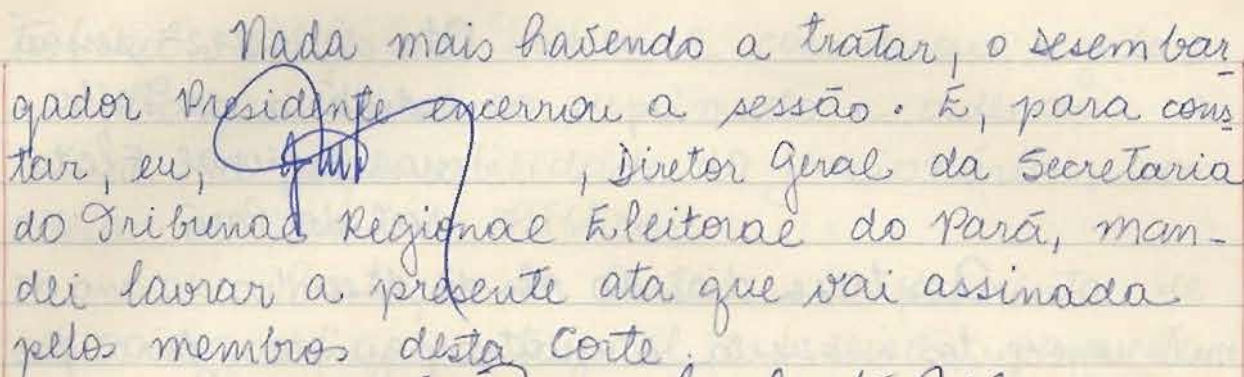 Nada mais havendo a tratar, o desembar
gador Presidente encerrou a sessão. E, para cons
tar, eu, , Diretor Geral da Secretaria
do Tribunal Regional Eleitoral do Pará, man-
dei lavrar a presente ata que vai assinada
pelos membros desta Corte.